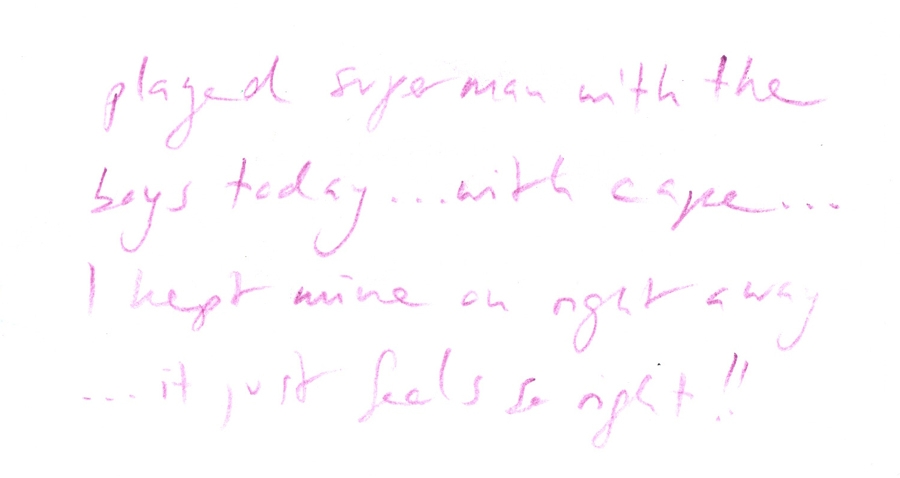 played superman with the
boys today...with cape...
I kept mine on right away
...it just feels so right!!